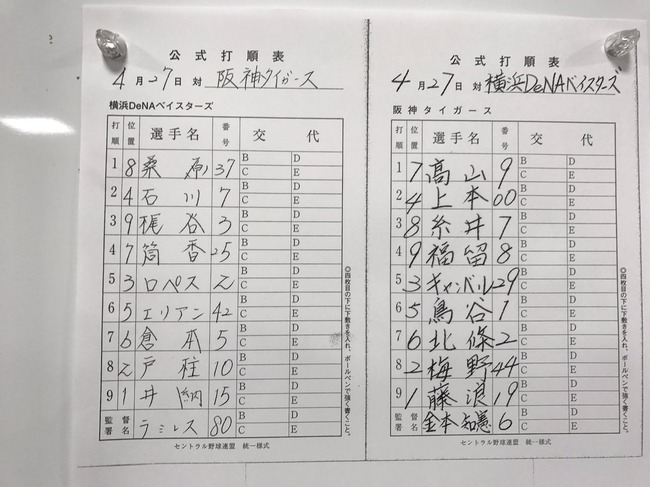 公式打順表
4月27日 対 阪神タイガース
横浜DeNAベイスターズ
打順 位置 選手名 番号 交代
1 8 桑原 37 B D C E
2 4 石川 7 B D C E
3 9 梶谷 3 B D C E
4 7 筒香 25 B D C E
5 3 ロペス 2 B D C E
6 5 エリアン 42 B D C E
7 6 倉本 5 B D C E
8 2 戸柱 10 B D C E
9 1 井納 15 B D C E
監督署名 ラミレス 80 B D C E
◎四枚目の下に下敷きを入れ、ボールペンで強く書くこと。
セントラル野球連盟 統一様式
公式打順表
4月27日 対 横浜DeNAベイスターズ
阪神タイガース
打順 位置 選手名 番号 交代
1 7 高山 9 B D C E
2 4 上本 00 B D C E
3 8 糸井 7 B D C E
4 9 福留 8 B D C E
5 3 キャンベル 29 B D C E
6 5 鳥谷 1 B D C E
7 6 北條 2 B D C E
8 2 梅野 44 B D C E
9 1 藤浪 19 B D C E
監督署名 金本知憲 6 B D C E
◎四枚目の下に下敷きを入れ、ボールペンで強く書くこと。
セントラル野球連盟 統一様式